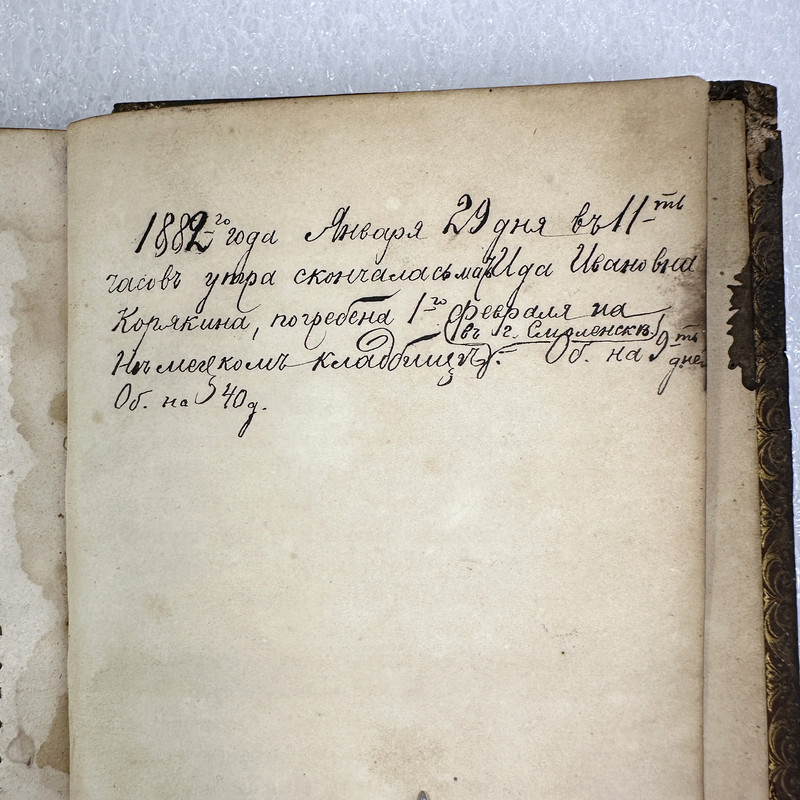 1882го года Января 29 дня въ 11ть
часовъ утра скончалась мать Ида Ивановна
Корякина, погребена 1го Февраля на
(въ г. Смоленскѣ)
Нѣмецкомъ кладбищѣ. Об. на 9ть дней
Об. на 40 д.